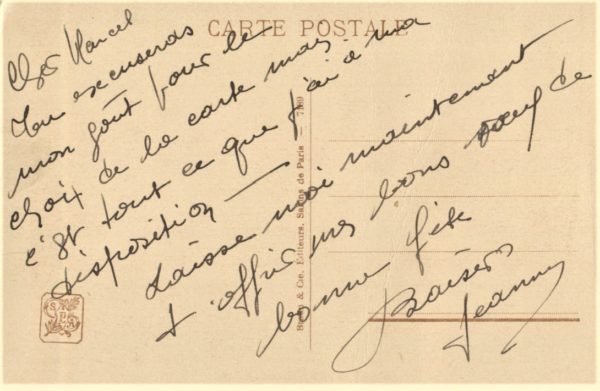 CARTE POSTALE
Cher Marcel
Tu excuseras
mon goût pour le
choix de la carte mais
c'est tout ce que j'ai à ma
disposition —
Laisse moi maintenant
t'offrir mes bons vœux de
bonne fête
Baisers
Jeanne
& Cie, Editeurs, Salons de Paris —